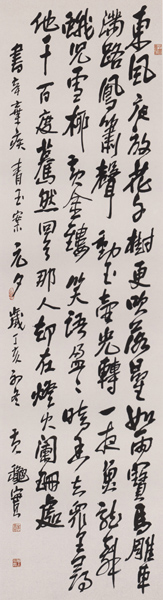 東風夜放花千樹更吹落星如雨寶馬雕車
滿路鳳簫聲動玉壺光轉一夜魚龍舞
蛾兒雪柳黃金縷笑語盈〻暗香去衆里尋
他千百度驀然回首那人却在燈火闌珊處
書辛棄疾青玉案元夕歲丁亥初冬